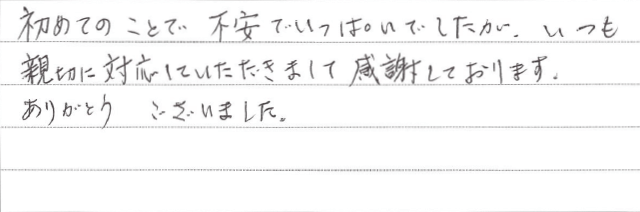 初めてのことで 不安でいっぱいでしたが、いつも
親切に対応していただきまして感謝しております。
ありがとう ございました。